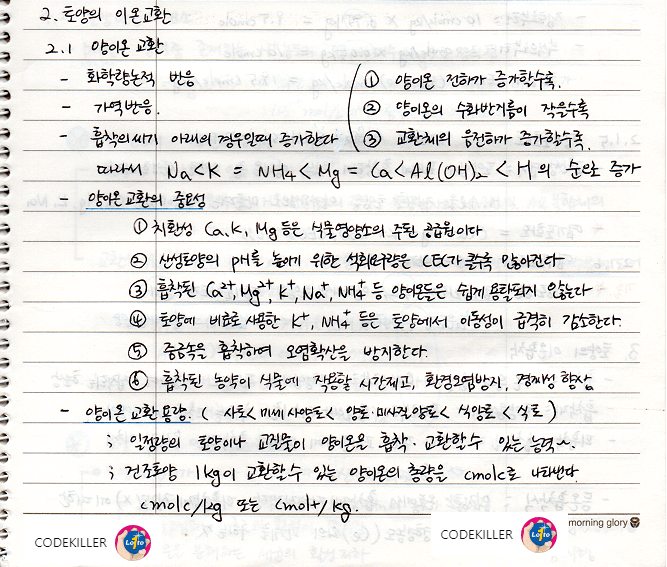 2. 토양의 이온교환
2.1 양이온 교환
- 화학량논적 반응
① 양이온 전하가 증가할수록.
- 가역반응.
② 양이온의 수화반지름이 작을수록
- 흡착의 세기 아래의 경우일때 증가한다
③ 교환체의 음전하가 증가할수록.
따라서 Na < K = NH4 < Mg = Ca < Al(OH)2 < H 의 순으로 증가
- 양이온 교환의 중요성
① 치환성 Ca, K, Mg 등은 식물영양소의 주된 공급원이다
② 산성토양의 pH를 높이기 위한 석회요구량은 CEC가 클수록 많아진다
③ 흡착된 Ca2+, Mg2+, K+, Na+, NH4+ 등 양이온들은 쉽게 용탈되지 않는다
④ 토양에 비료로 사용한 K+, NH4+ 등은 토양에서 이동성이 급격히 감소한다.
⑤ 중금속을 흡착하여 오염확산을 방지한다.
⑥ 흡착된 농약이 식물에 작용할 시간제고, 환경오염방지, 경제성 향상
- 양이온 교환 용량 ( 사토 < 미세사양토 < 양토·미사질양토 < 식양토 < 식토 )
; 일정량의 토양이나 교질물이 양이온을 흡착·교환할 수 있는 능력~.
; 건조토양 1kg이 교환할 수 있는 양이온의 총량을 cmolc로 나타낸다.
cmolc/kg 또는 cmol+/kg.
morning glory
CODEKILLER
Lotto
CODEKILLER
Lotto